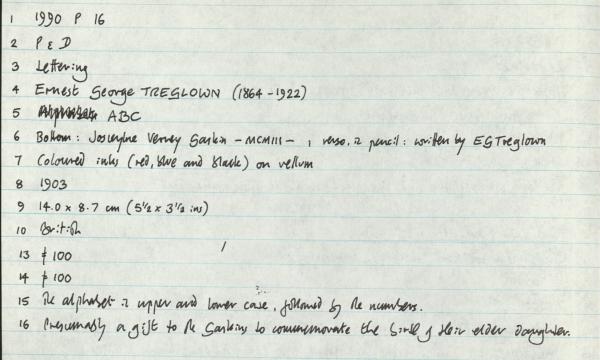 1 1990 P 16
2 P & D
3 Lettering
4 Ernest George TREGLOWN (1864-1922)
5 ABC
6 Bottom: Joscelyne Verney Gaskin - MCMIII - , verso, in pencil: written by EGTreglown
7 Coloured inks (red, blue and black) on vellum
8 1903
9 14.0 x 8.7 cm (5 1/2 x 3 1/2 ins)
10 British
13 100
14 100
15 The alphabet in upper and lower case, followed by the numbers.
16 Presumably a gift to the Gaskins to commemorate the birth of their elder daughter.